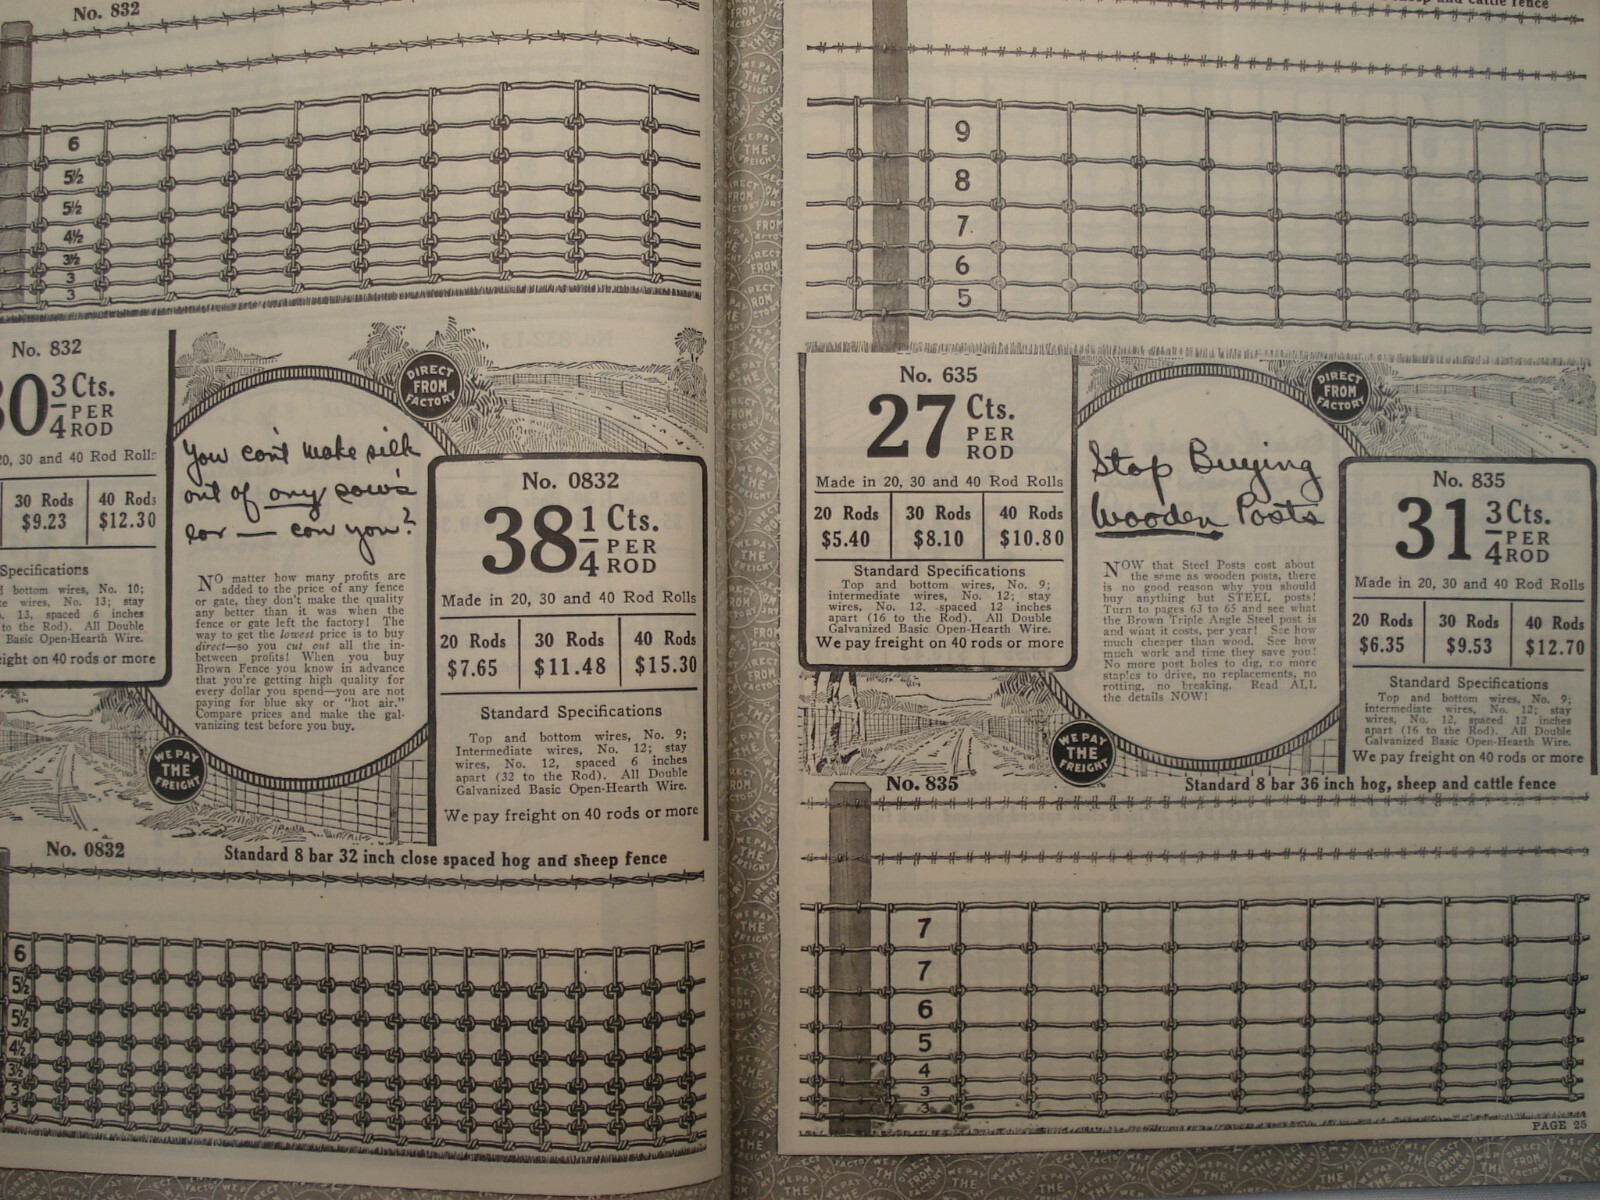 No. 832
6
5½
5½
4½
3½
3
3
No. 832
30 3/4 Cts.
PER
ROD
20, 30 and 40 Rod Rolls
30 Rods 40 Rods
$9.23 $12.30
Specifications
bottom wires, No. 10;
wires, No. 13; stay
13, spaced 6 inches
to the Rod). All Double
Basic Open-Hearth Wire.
freight on 40 rods or more
DIRECT
FROM
FACTORY
You can't make silk
out of any sow's
ear — can you?
NO matter how many profits are
added to the price of any fence
or gate, they don't make the quality
any better than it was when the
fence or gate left the factory! The
way to get the lowest price is to buy
direct—so you cut out all the in-
between profits! When you buy
Brown Fence you know in advance
that you're getting high quality for
every dollar you spend—you are not
paying for blue sky or "hot air."
Compare prices and make the gal-
vanizing test before you buy.
WE PAY
THE
FREIGHT
No. 0832
38 1/4 Cts.
PER
ROD
Made in 20, 30 and 40 Rod Rolls
20 Rods 30 Rods 40 Rods
$7.65 $11.48 $15.30
Standard Specifications
Top and bottom wires, No. 9;
Intermediate wires, No. 12; stay
wires, No. 12, spaced 6 inches
apart (32 to the Rod). All Double
Galvanized Basic Open-Hearth Wire.
We pay freight on 40 rods or more
No. 0832 Standard 8 bar 32 inch close spaced hog and sheep fence
6
5½
5½
4½
3½
3
3
sheep and cattle fence
9
8
7
6
5
No. 635
27 Cts.
PER
ROD
Made in 20, 30 and 40 Rod Rolls
20 Rods 30 Rods 40 Rods
$5.40 $8.10 $10.80
Standard Specifications
Top and bottom wires, No. 9;
intermediate wires, No. 12; stay
wires, No. 12, spaced 12 inches
apart (16 to the Rod). All Double
Galvanized Basic Open-Hearth Wire.
We pay freight on 40 rods or more
DIRECT
FROM
FACTORY
Stop Buying
Wooden Posts
NOW that Steel Posts cost about
the same as wooden posts, there
is no good reason why you should
buy anything but STEEL posts!
Turn to pages 63 to 65 and see what
the Brown Triple Angle Steel post is
and what it costs, per year! See how
much cheaper than wood. See how
much work and time they save you!
No more post holes to dig, no more
staples to drive, no replacements, no
rotting, no breaking. Read ALL
the details NOW!
WE PAY
THE
FREIGHT
No. 835
31 3/4 Cts.
PER
ROD
Made in 20, 30 and 40 Rod Rolls
20 Rods 30 Rods 40 Rods
$6.35 $9.53 $12.70
Standard Specifications
Top and bottom wires, No. 9;
intermediate wires, No. 12; stay
wires, No. 12, spaced 12 inches
apart (16 to the Rod). All Double
Galvanized Basic Open-Hearth Wire.
We pay freight on 40 rods or more
No. 835 Standard 8 bar 36 inch hog, sheep and cattle fence
7
7
6
5
4
3
3
PAGE 25